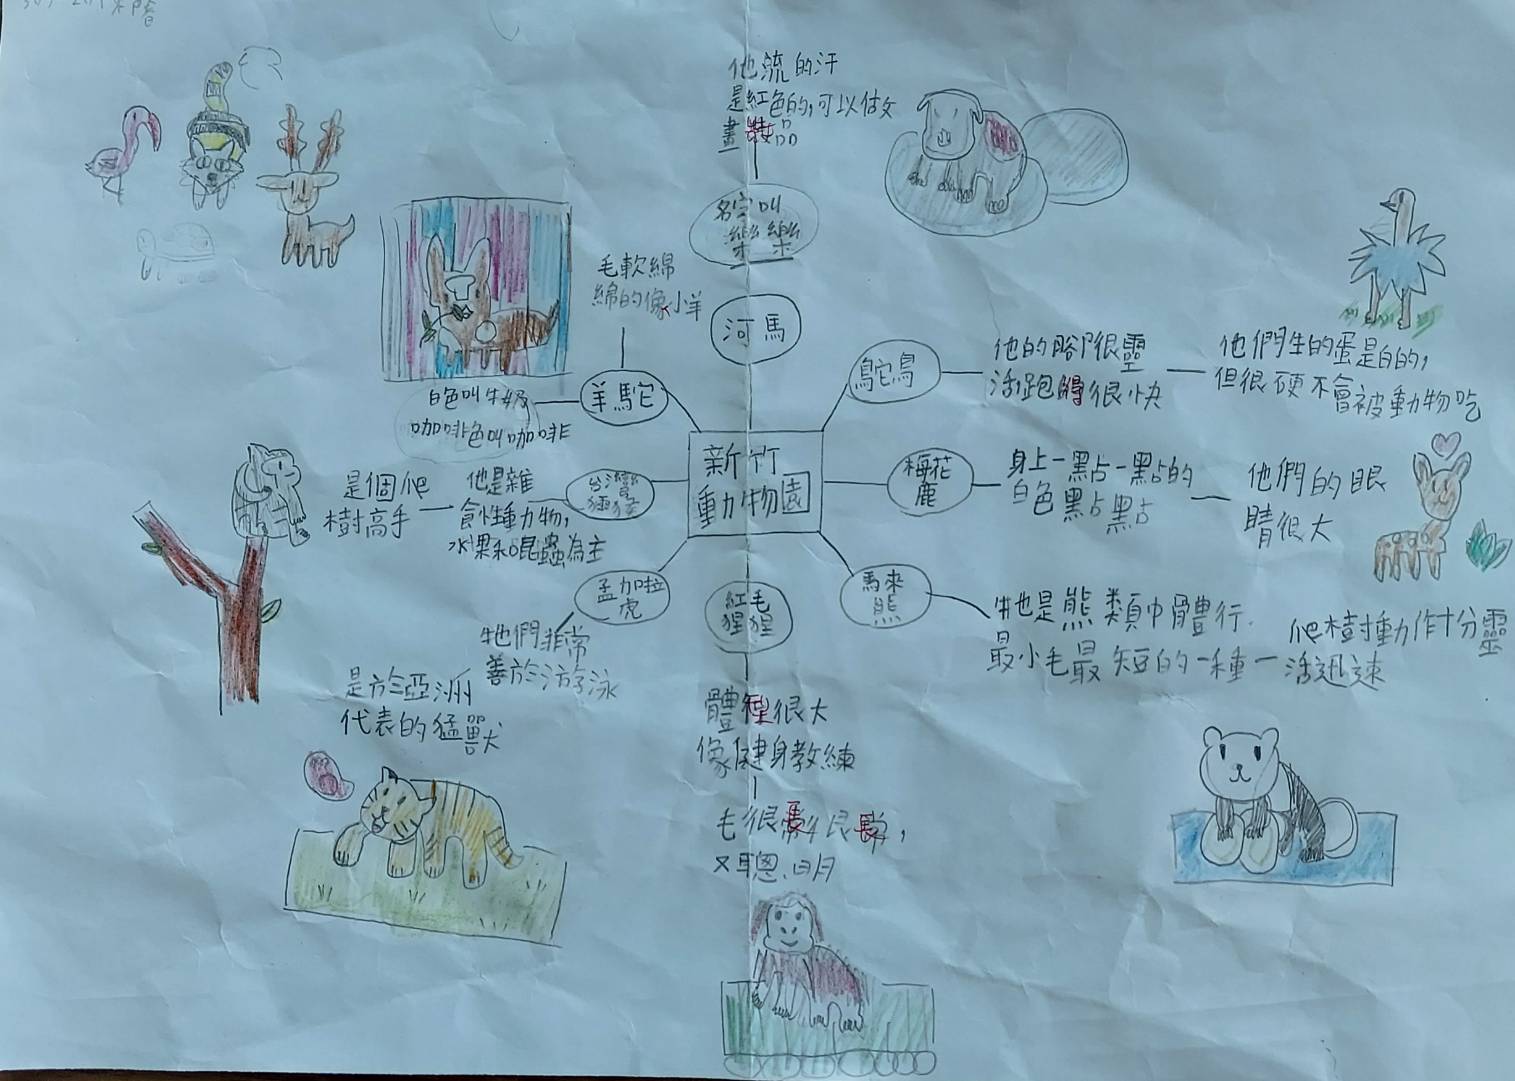 他流的汗
是紅色的,可以做女
畫裝品
名字叫
樂樂
河馬
毛軟綿
綿的像小羊
羊駝
白色叫牛奶
咖啡色叫咖啡
鴕鳥
他的腳很靈
活跑得很快
他們生的蛋是白的,
但很硬不會被動物吃
新竹
動物園
梅花
鹿
身上一點一點的
白色點點
他們的眼
睛很大
台灣
獼猴
他是雜
食性動物,
水果和昆蟲為主
是個爬
樹高手
孟加拉
虎
牠們非常
善於游泳
是於亞洲
代表的猛獸
紅毛
猩猩
體型很大
像健身教練
毛很長
又聰明
馬來
熊
牠是熊類中體行
最小毛最短的一種
爬樹動作十分靈
活迅速